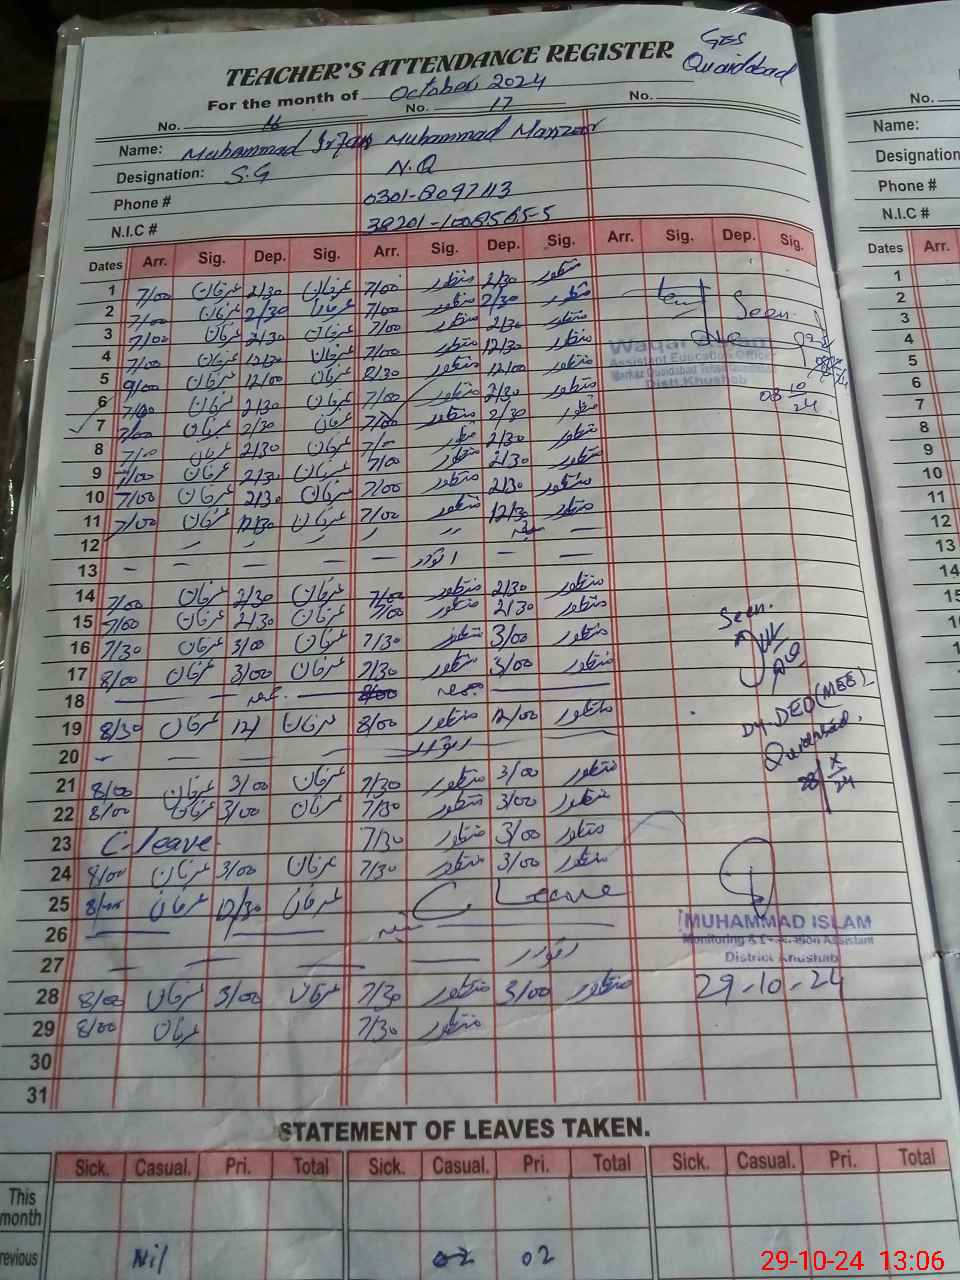 TEACHER'S ATTENDANCE REGISTER
GES
Quaidabad
For the month of October 2024
No. 16 No. 17 No.
Name: Muhammad Irfan Muhammad Manzoor
Designation: S.G N.Q
Phone # 0301-8097113
N.I.C #
Dates Arr. Sig. Dep. Sig. Arr. Sig. Dep. Sig. Arr. Sig. Dep. Sig.
1 7/00 عرفان 2/30 عرفان 7/00 منظور 2/30 منظور
2 7/00 عرفان 2/30 عرفان 7/00 منظور 2/30 منظور
3 7/00 عرفان 2/30 عرفان 7/00 منظور 2/30 منظور
Seen.
4 7/00 عرفان 12/30 عرفان 7/00 منظور 12/30 منظور
Assistant Education Officer
Distt. Khushab
5 9/00 عرفان 12/00 عرفان 8/30 منظور 12/00 منظور
6 7/00 عرفان 2/30 عرفان 7/00 منظور 2/30 منظور
08 10/24
7 7/00 عرفان 2/30 عرفان 7/00 منظور 2/30 منظور
8 7/00 عرفان 2/30 عرفان 7/00 منظور 2/30 منظور
9 7/00 عرفان 2/30 عرفان 7/00 منظور 2/30 منظور
10 7/00 عرفان 2/30 عرفان 7/00 منظور 2/30 منظور
11 7/00 عرفان 12/30 عرفان 7/00 منظور 12/30 منظور
12
13 اتوار
14 7/00 عرفان 2/30 عرفان 7/00 منظور 2/30 منظور
15 7/00 عرفان 2/30 عرفان 7/00 منظور 2/30 منظور
Seen.
16 7/30 عرفان 3/00 عرفان 7/30 منظور 3/00 منظور
17 8/00 عرفان 3/00 عرفان 7/30 منظور 3/00 منظور
18
Dy. DEO (MEE)
19 8/30 عرفان 12/ عرفان 8/00 منظور 12/00 منظور
Quaidabad.
20 اتوار
21 8/00 عرفان 3/00 عرفان 7/30 منظور 3/00 منظور
28/X/24
22 8/00 عرفان 3/00 عرفان 7/30 منظور 3/00 منظور
23 C-leave 7/30 منظور 3/00 منظور
24 8/00 عرفان 3/00 عرفان 7/30 منظور 3/00 منظور
25 8/00 عرفان 12/30 عرفان C Leave
MUHAMMAD ISLAM
26
Monitoring & Evaluation Assistant
District Khushab
27 اتوار
28 8/00 عرفان 3/00 عرفان 7/30 منظور 3/00 منظور
29-10-24
29 8/00 عرفان 7/30 منظور
30
31
STATEMENT OF LEAVES TAKEN.
Sick. Casual. Pri. Total Sick. Casual. Pri. Total Sick. Casual. Pri. Total
This month
revious Nil 02 02
No.
Name:
Designation
Phone #
N.I.C #
Dates Arr.
1
2
3
4
5
6
7
8
9
10
11
12
13
14
15
16
29-10-24 13:06